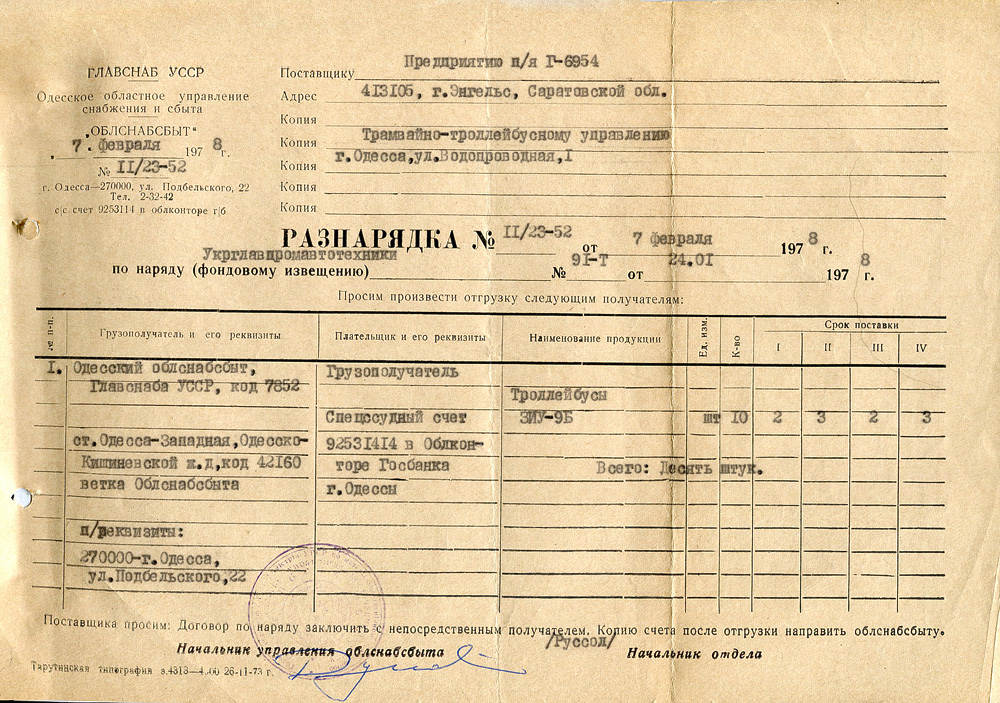 ГЛАВСНАБ УССР
Одесское областное управление
снабжения и сбыта
„ОБЛСНАБСБЫТ"
„ 7. февраля 1978 г.
№ II/23-52
г. Одесса—270000, ул. Подбельского, 22
Тел. 2-32-42
с/с счет 9253114 в облконторе г/б
Поставщику Предприятию п/я Г-6954
Адрес 413105, г.Энгельс, Саратовской обл.
Копия
Копия Трамвайно-троллейбусному управлению
Копия г.Одесса,ул.Водопроводная,I
Копия
Копия
РАЗНАРЯДКА № II/23-52 от 7 февраля 1978 г.
Укрглавпромавтотехники
по наряду (фондовому извещению) № 9I-Т от 24.0I 1978 г.
Просим произвести отгрузку следующим получателям:
№ п-п. Грузополучатель и его реквизиты Плательщик и его реквизиты Наименование продукции Ед. изм. К-во Срок поставки
I II III IV
I. Одесский облснабсбыт, Грузополучатель
Главснаба УССР, код 7852
Троллейбусы
Спецссудный счет ЗИУ-9Б шт 10 2 3 2 3
ст.Одесса-Западная,Одесско- 92531414 в Облкон-
Кишиневской ж.д,код 42160 торе Госбанка Всего: Десять штук.
ветка Облснабсбыта г.Одессы
п/реквизиты:
270000-г.Одесса,
ул.Подбельского,22
Поставщика просим: Договор по наряду заключить с непосредственным получателем. Копию счета после отгрузки направить облснабсбыту.
Начальник управления облснабсбыта /Руссол/ Начальник отдела
Тарутинская типография з.4313— 26-11-73 г.